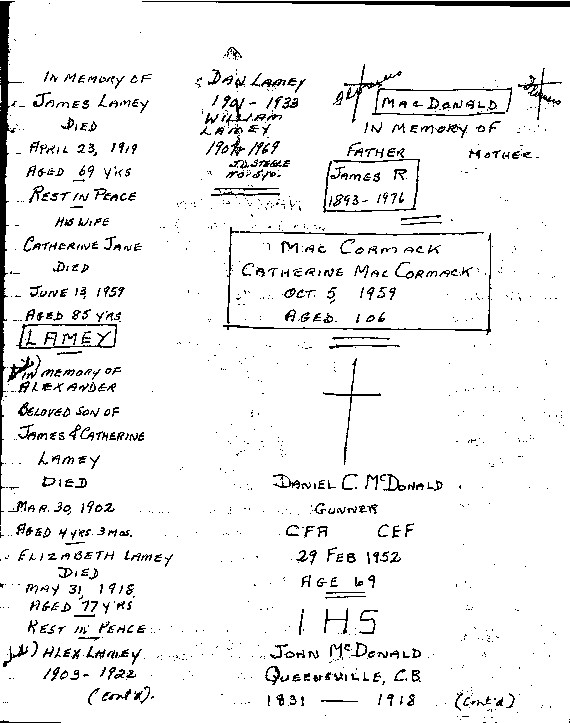 IN MEMORY OF
JAMES LAMEY
DIED
APRIL 23, 1919
AGED 69 YRS
REST IN PEACE
HIS WIFE
CATHERINE JANE
DIED
JUNE 13, 1959
AGED 85 YRS
LAMEY
IN MEMORY OF
ALEXANDER
BELOVED SON OF
JAMES & CATHERINE
LAMEY
DIED
MAR. 30, 1902
AGED 4 YRS 3 MOS.
ELIZABETH LAMEY
DIED
MAY 31, 1918
AGED 77 YRS
REST IN PEACE
ALEX LAMEY
1903 - 1922
(Cont'd).
DAN LAMEY
1901 - 1933
WILLIAM
LAMEY
1907 - 1969
J.D. STEELE
Flowers
Flowers
MACDONALD
IN MEMORY OF
FATHER MOTHER
JAMES R
1893 - 1976
MAC CORMACK
CATHERINE MAC CORMACK
OCT. 5 1959
AGED 106
DANIEL C. McDONALD
GUNNER
CFA CEF
29 FEB 1952
AGE 69
IHS
JOHN McDONALD
QUEENSVILLE, C.B.
1831 — 1918 (Cont'd)